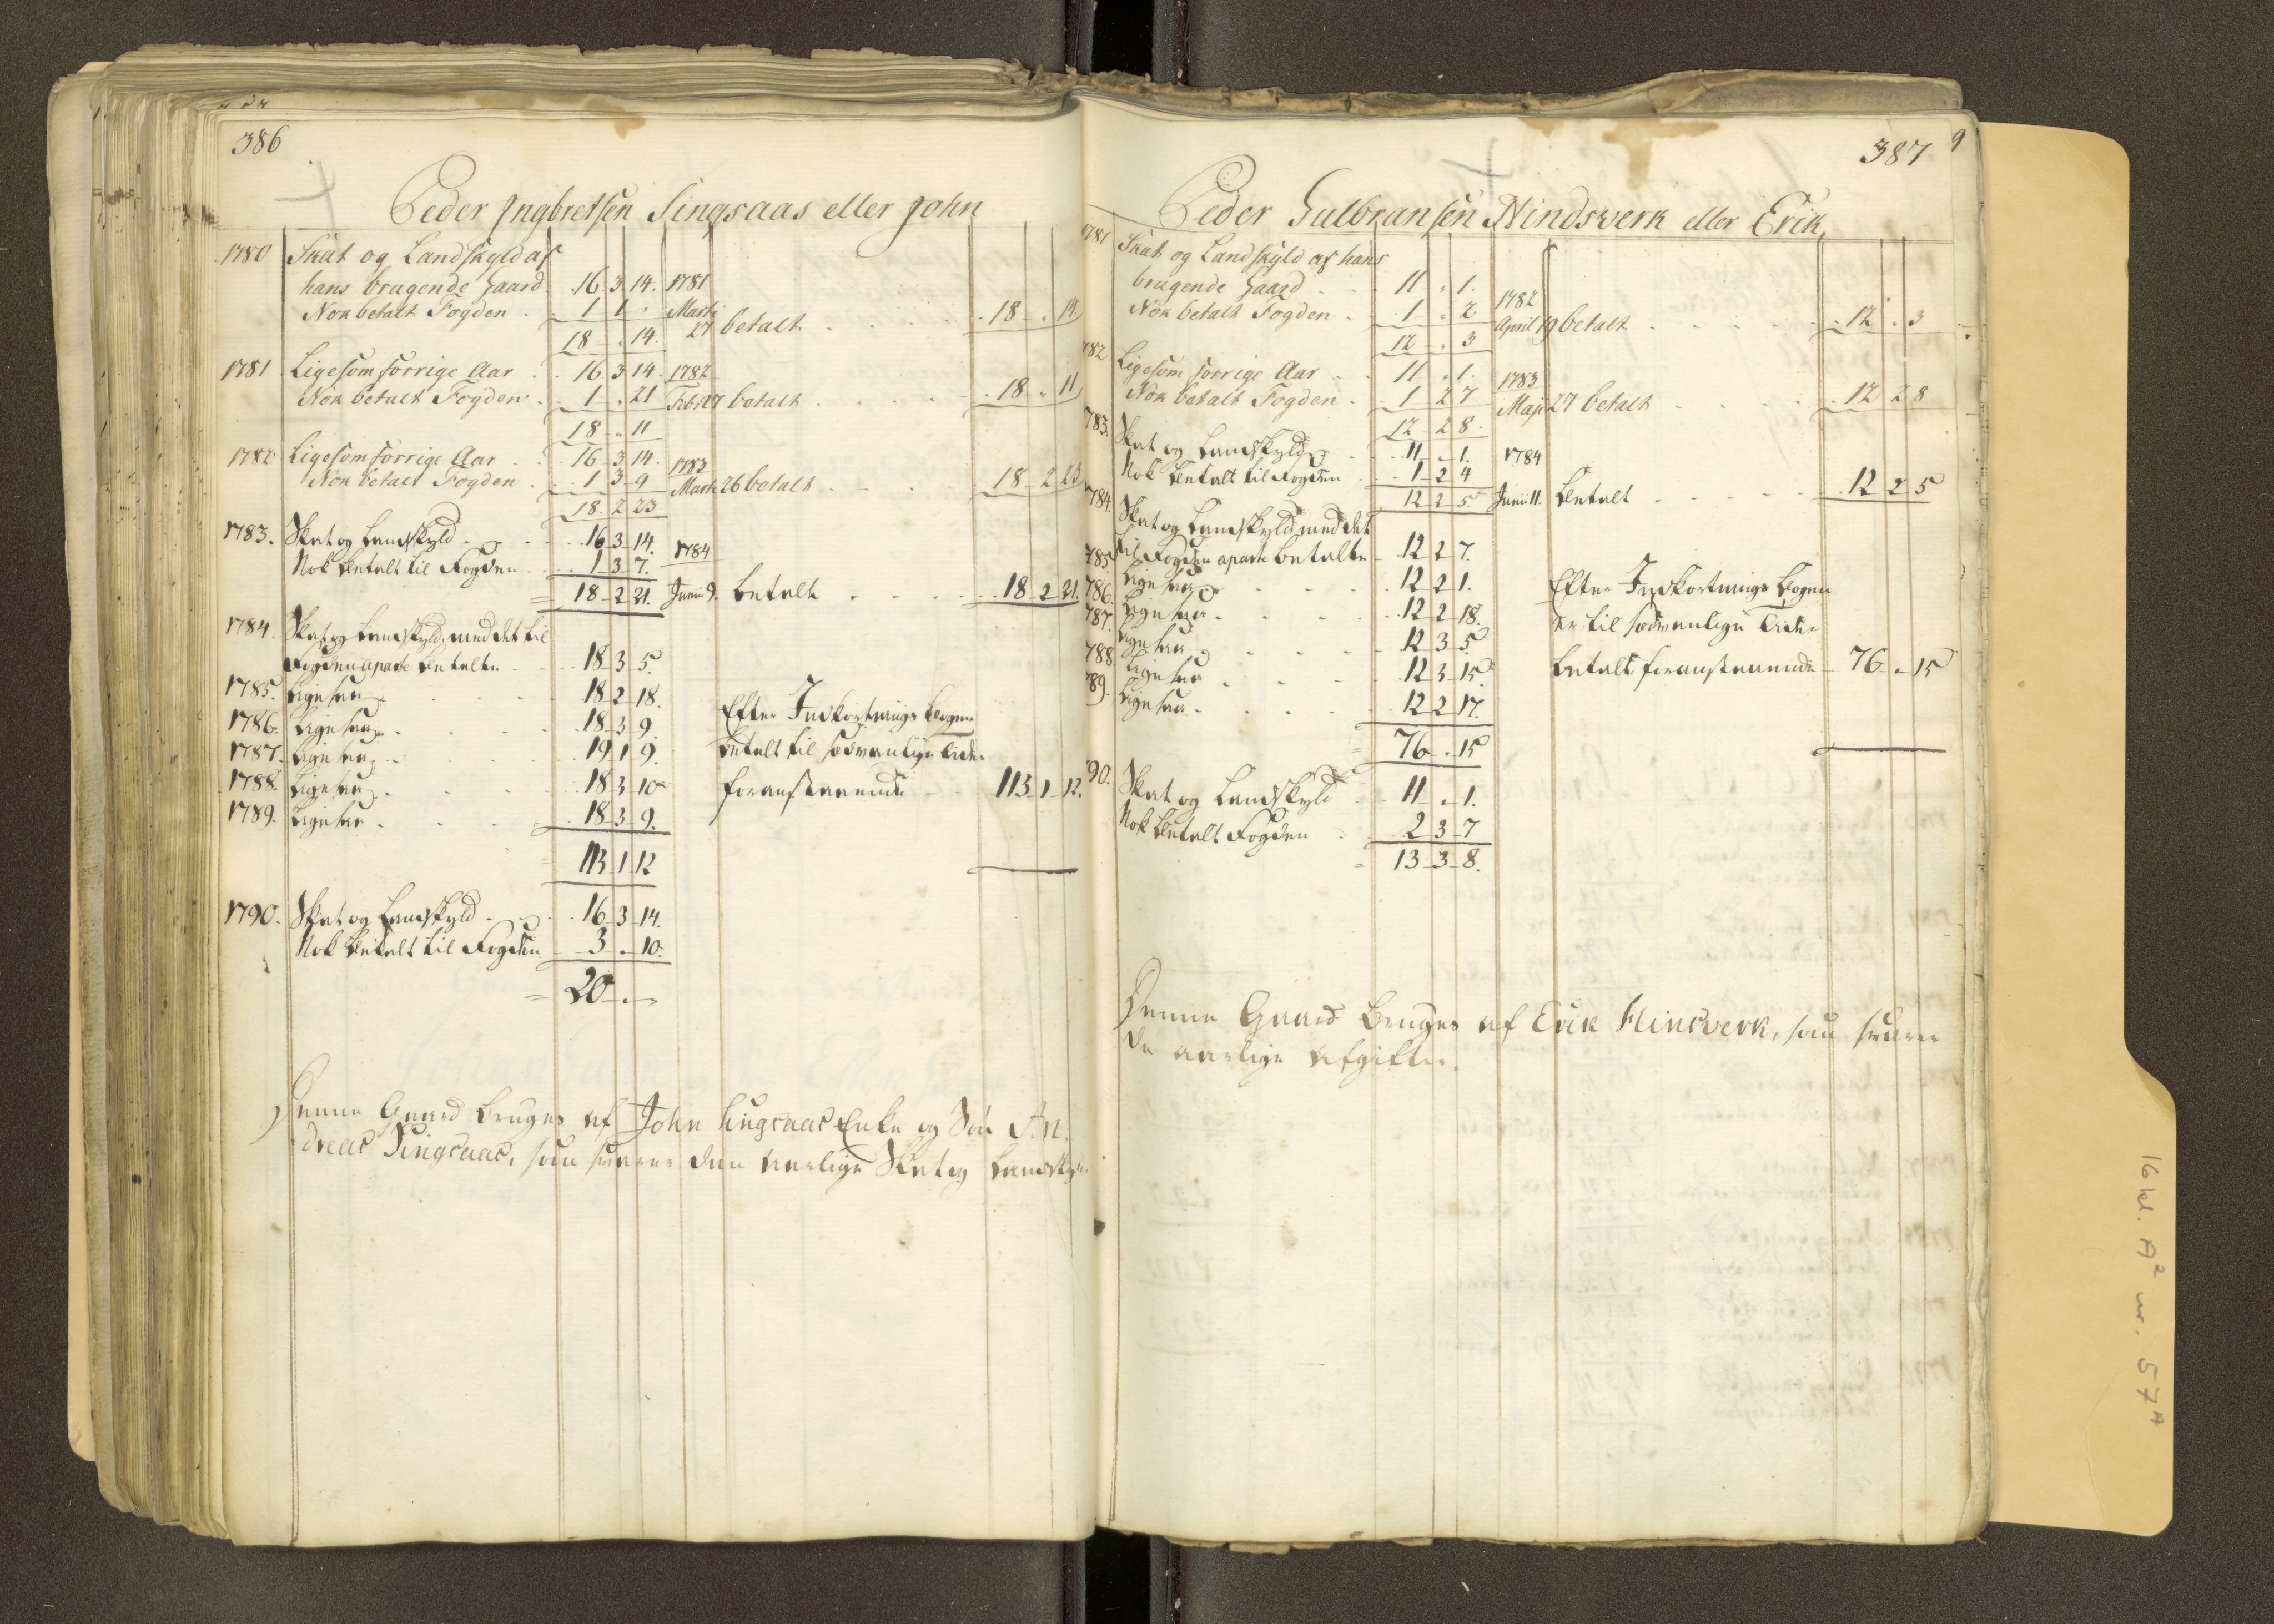 386
Peder Ingbretsen Singsaas eller John
1780 Skat og Landskyld af
hans brugende Gaard . 16 3 14. 1781
Nok betalt Fogden . 1 1 . Marti
18 . 14. 27 betalt . . . . . 18 . 14
1781 Ligesom forrige Aar . 16 3 14. 1782
Nok betalt Fogden . 1 . 21 Febr 27 betalt . . . . 18 . 11
18 . 11
1782 Ligesom forrige Aar . 16 3 14. 1783
Nok betalt Fogden . 1 3 9 Marti 26 betalt . . . . 18 2 23
18. 2 23
1783. Skat og Landskyld . . . 16 3 14. 1784
Nok betalt til Fogden . . 1 3 7.
= 18 2 21. Junii 9. betalt . . . . 18 2 21.
1784. Skat og Landskyld, med det til
Fogden aparte betalte . . 18 3 5.
1785. Ligesaa . . . . 18 2 18.
1786. Ligesaa . . . . 18 3 9. Efter Indkortnings Bogen
1787. Ligesaa . . . . 19 1 9. betalt til sædvanlige Tider
1788. Ligesaa . . . . 18 3 10 foranstaaende . . 113 1 12.
1789. Ligesaa . . . . 18 3 9.
= 113 1 12
1790. Skat og Landskyld . . . 16 3 14.
Nok betalt til Fogden 3 . 10.
= 20 . "
Denne Gaard bruges af John Singsaas Enke og Søn An,
dreas Singsaas, som svarer den aarlige Skat og Landskyld.
387 9
Peder Gulbransen Hindsverk eller Erik
1781 Skat og Landskyld af hans
brugende Gaard . . . 11 . 1. 1782
Nok betalt Fogden . 1 . 2 April 19 betalt . . . . . 12 . 3
12 . 3
782 Ligesom forrige Aar . . 11 . 1. 1783
Nok betalt Fogden . 1 2 7 Maji 27 betalt . . . . 12 2 8
12 2 8.
783. Skat og Landskyld . . 11 . 1. 1784
Nok betalt til Fogden . 1 2 4
12 2 5 Junii 11. betalt . . . . . 12 2 5
784. Skat og Landskyld, med det
til Fogden aparte betalte . 12 2 7.
785 Ligesaa . . . . 12 2 1. Efter Indkortnings Bogen
786. Ligesaa . . . . 12 2 18. er til sædvanlige Tider
787. Ligesaa . . . . 12 3 5 betalt foranstaaende 76 . 15
788. Ligesaa . . . . 12 3 15
89. Ligesaa . . . . 12 2 17.
= 76 . 15
90. Skat og Landskyld . 11 . 1.
Nok betalt Fogden . 2 3 7
= 13 3 8.
Denne Gaard bruges af Erik Hinsverk, som svarer
de aarlige Afgifter.
16 kl. A² nr. 57ᴬ